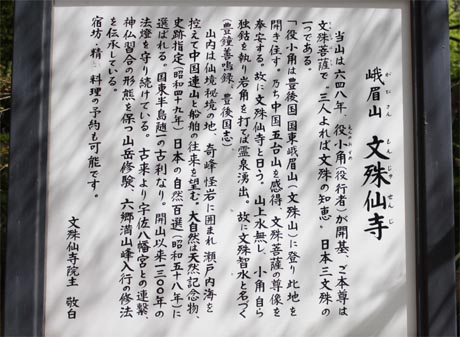 がびさん もんじゅせんじ
峨眉山 文殊仙寺
当山は六四八年、役小角(役行者)が開基、ご本尊は
文殊菩薩で、三人よれば文殊の知恵、日本三文殊の
一つである。
「役小角は豊後国国東峨眉山(文殊山)に登り此地を
開き住す。乃ち中国五台山を感得、文殊菩薩の尊像を
奉安する。故に文殊仙寺と曰う。山上水無し、小角自ら
独鈷を執り岩角を打てば霊泉湧出。故に文殊智水と名づく
(豊鐘善鳴録、豊後国志)
山内は仙境秘境の地、奇峰怪岩に囲まれ瀬戸内海を
控えて中国連山と船舶の往来を望む。大自然は天然記念物、
史跡指定(昭和四十九年)日本の自然百選(昭和五十八年)に
選ばれる。国東半島随一の古刹なり。開山以来一三〇〇年の
法燈を守り続けている。古来より宇佐八幡宮との連繋、
神仏習合の形態を保つ山岳修験、六郷満山峰入行の修法
を伝承している。
宿坊、精、料理の予約も可能です。
文殊仙寺院主 敬白